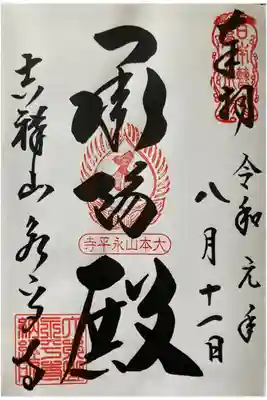 奉拝
令和元年
八月十一日
承陽殿
大本山永平寺
吉祥山永平寺